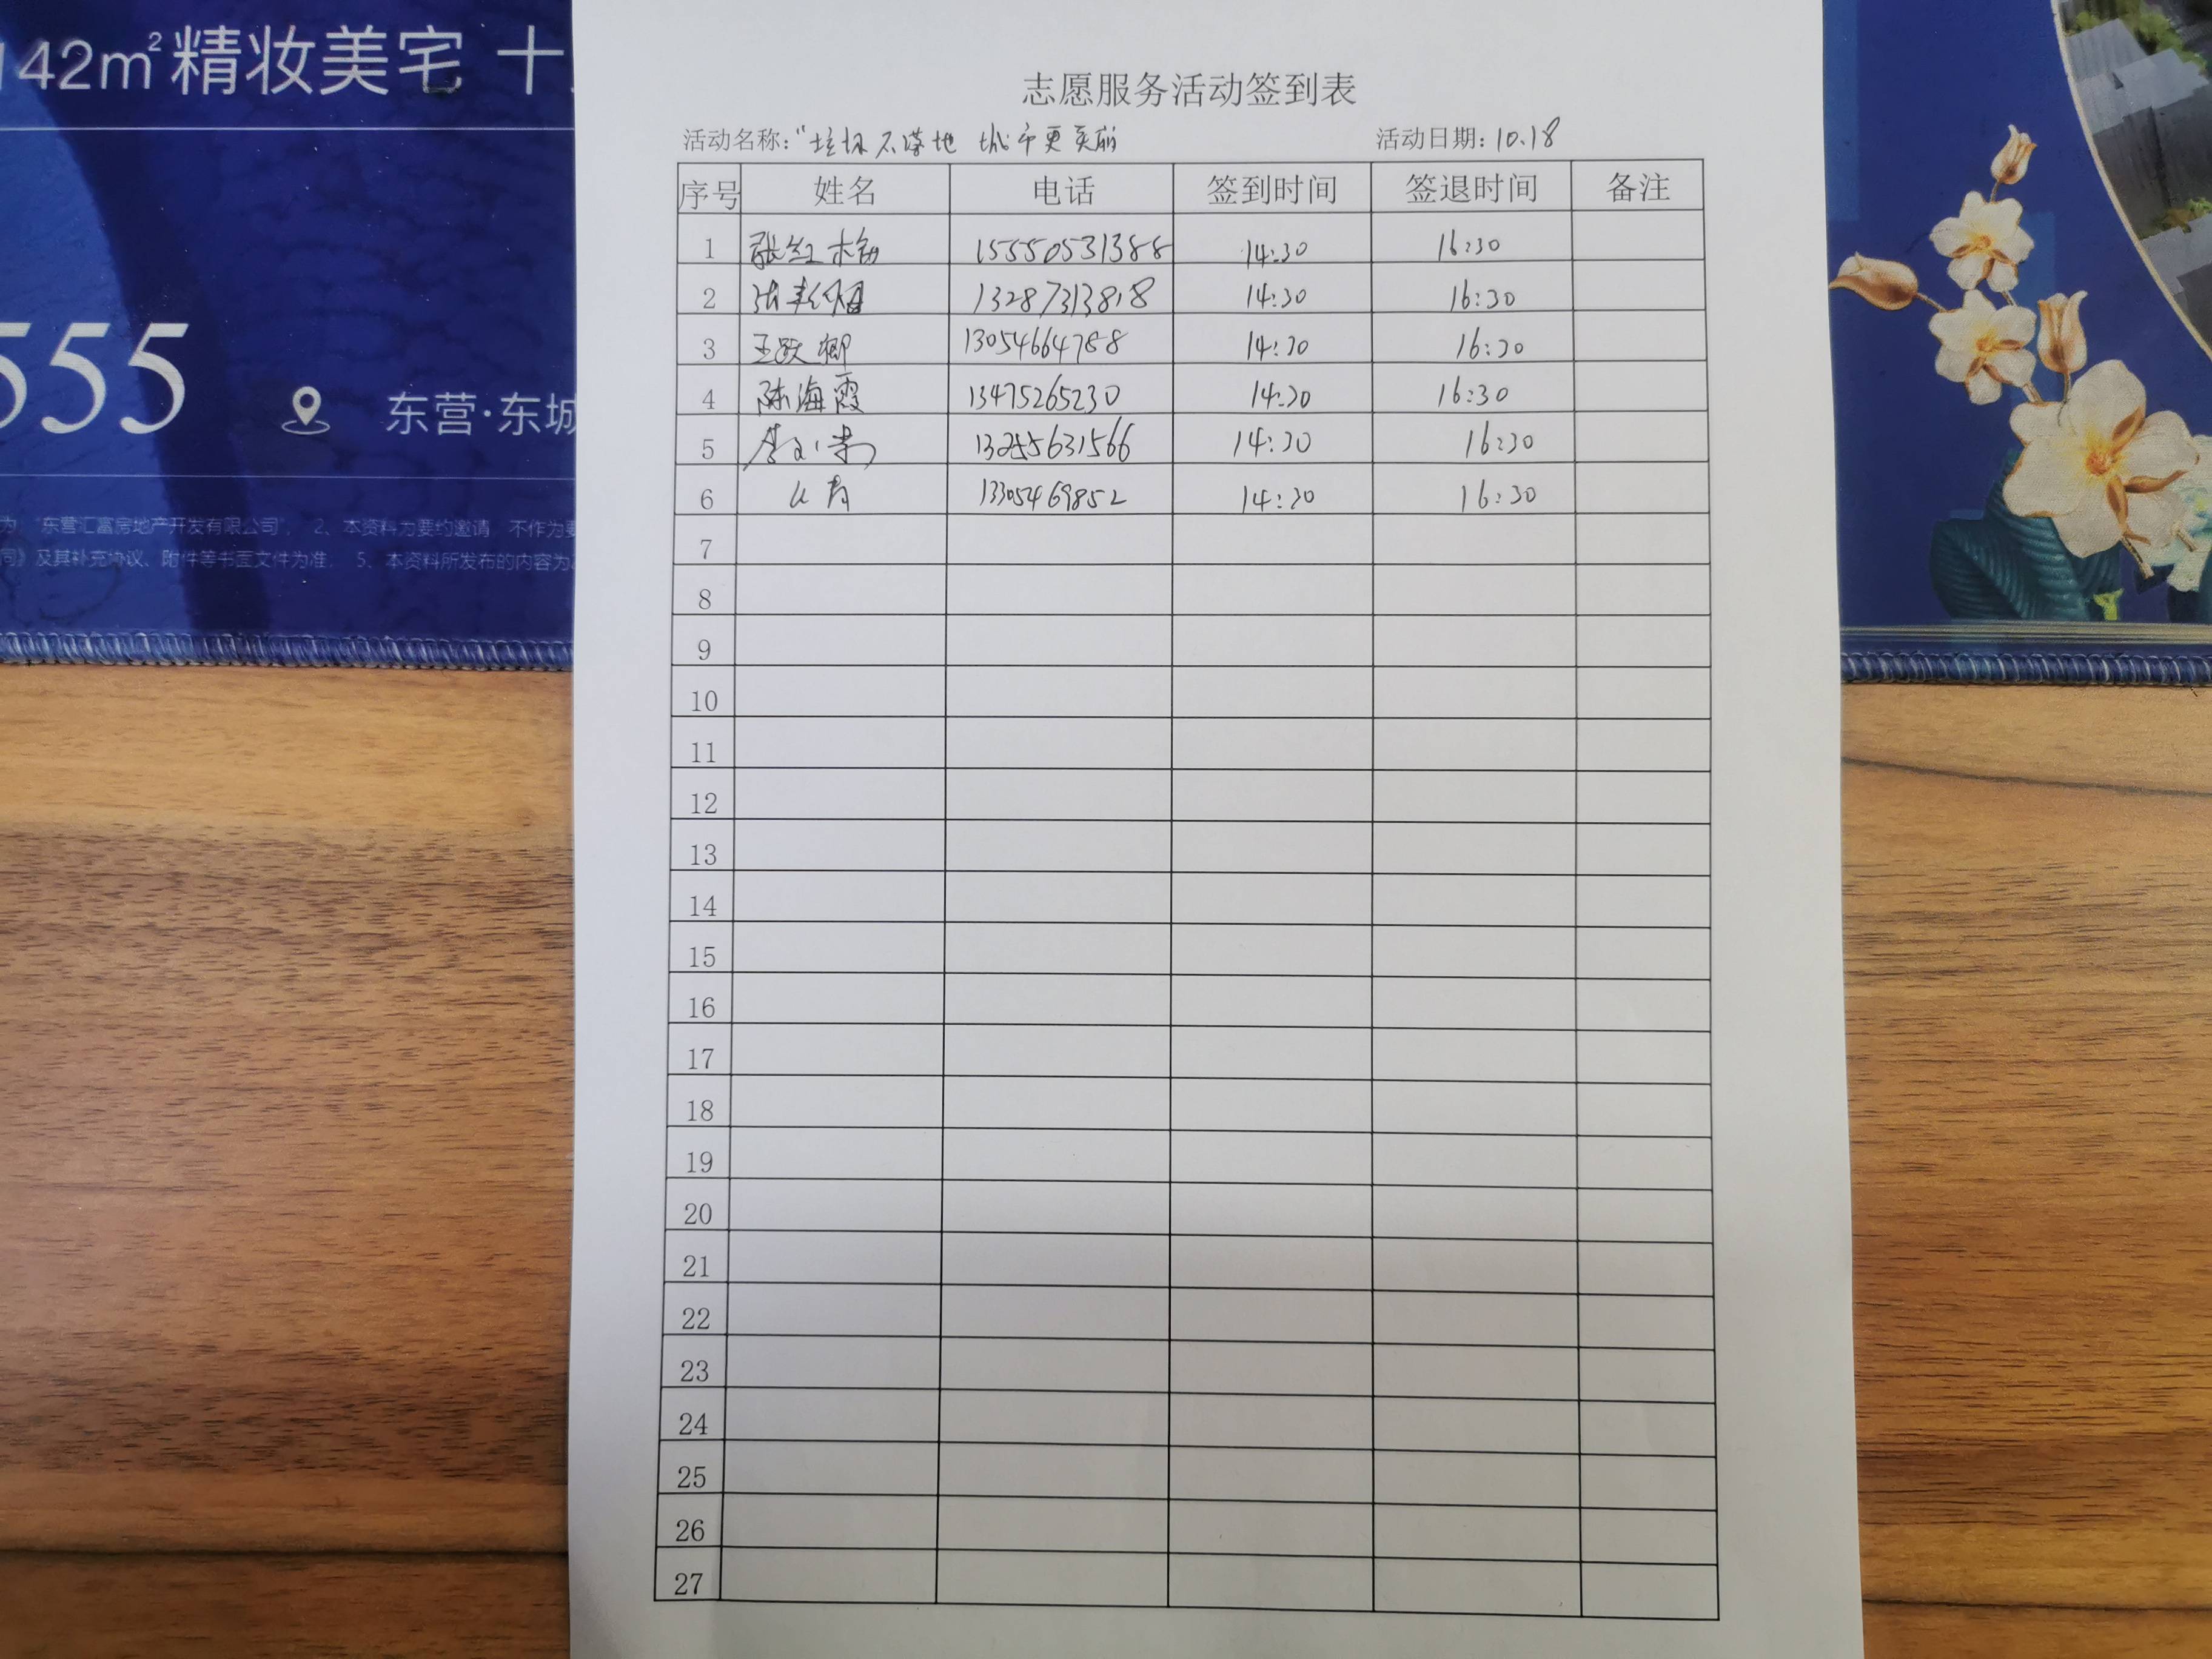 142m²精妆美宅 十
555
东营·东城
为 "东营汇富房地产开发有限公司", 2、本资料为要约邀请,不作为要
同》及其补充协议、附件等书面文件为准, 5、本资料所发布的内容为
志愿服务活动签到表
活动名称:"垃圾不落地 城市更美丽 活动日期:10.18
序号 姓名 电话 签到时间 签退时间 备注
1 张红梅 15550531388 14:30 16:30
2 13287313818 14:30 16:30
3 王跃卿 13054664788 14:30 16:30
4 陈海霞 13475265230 14:30 16:30
5 13255631566 14:30 16:30
6 13305469852 14:30 16:30
7
8
9
10
11
12
13
14
15
16
17
18
19
20
21
22
23
24
25
26
27